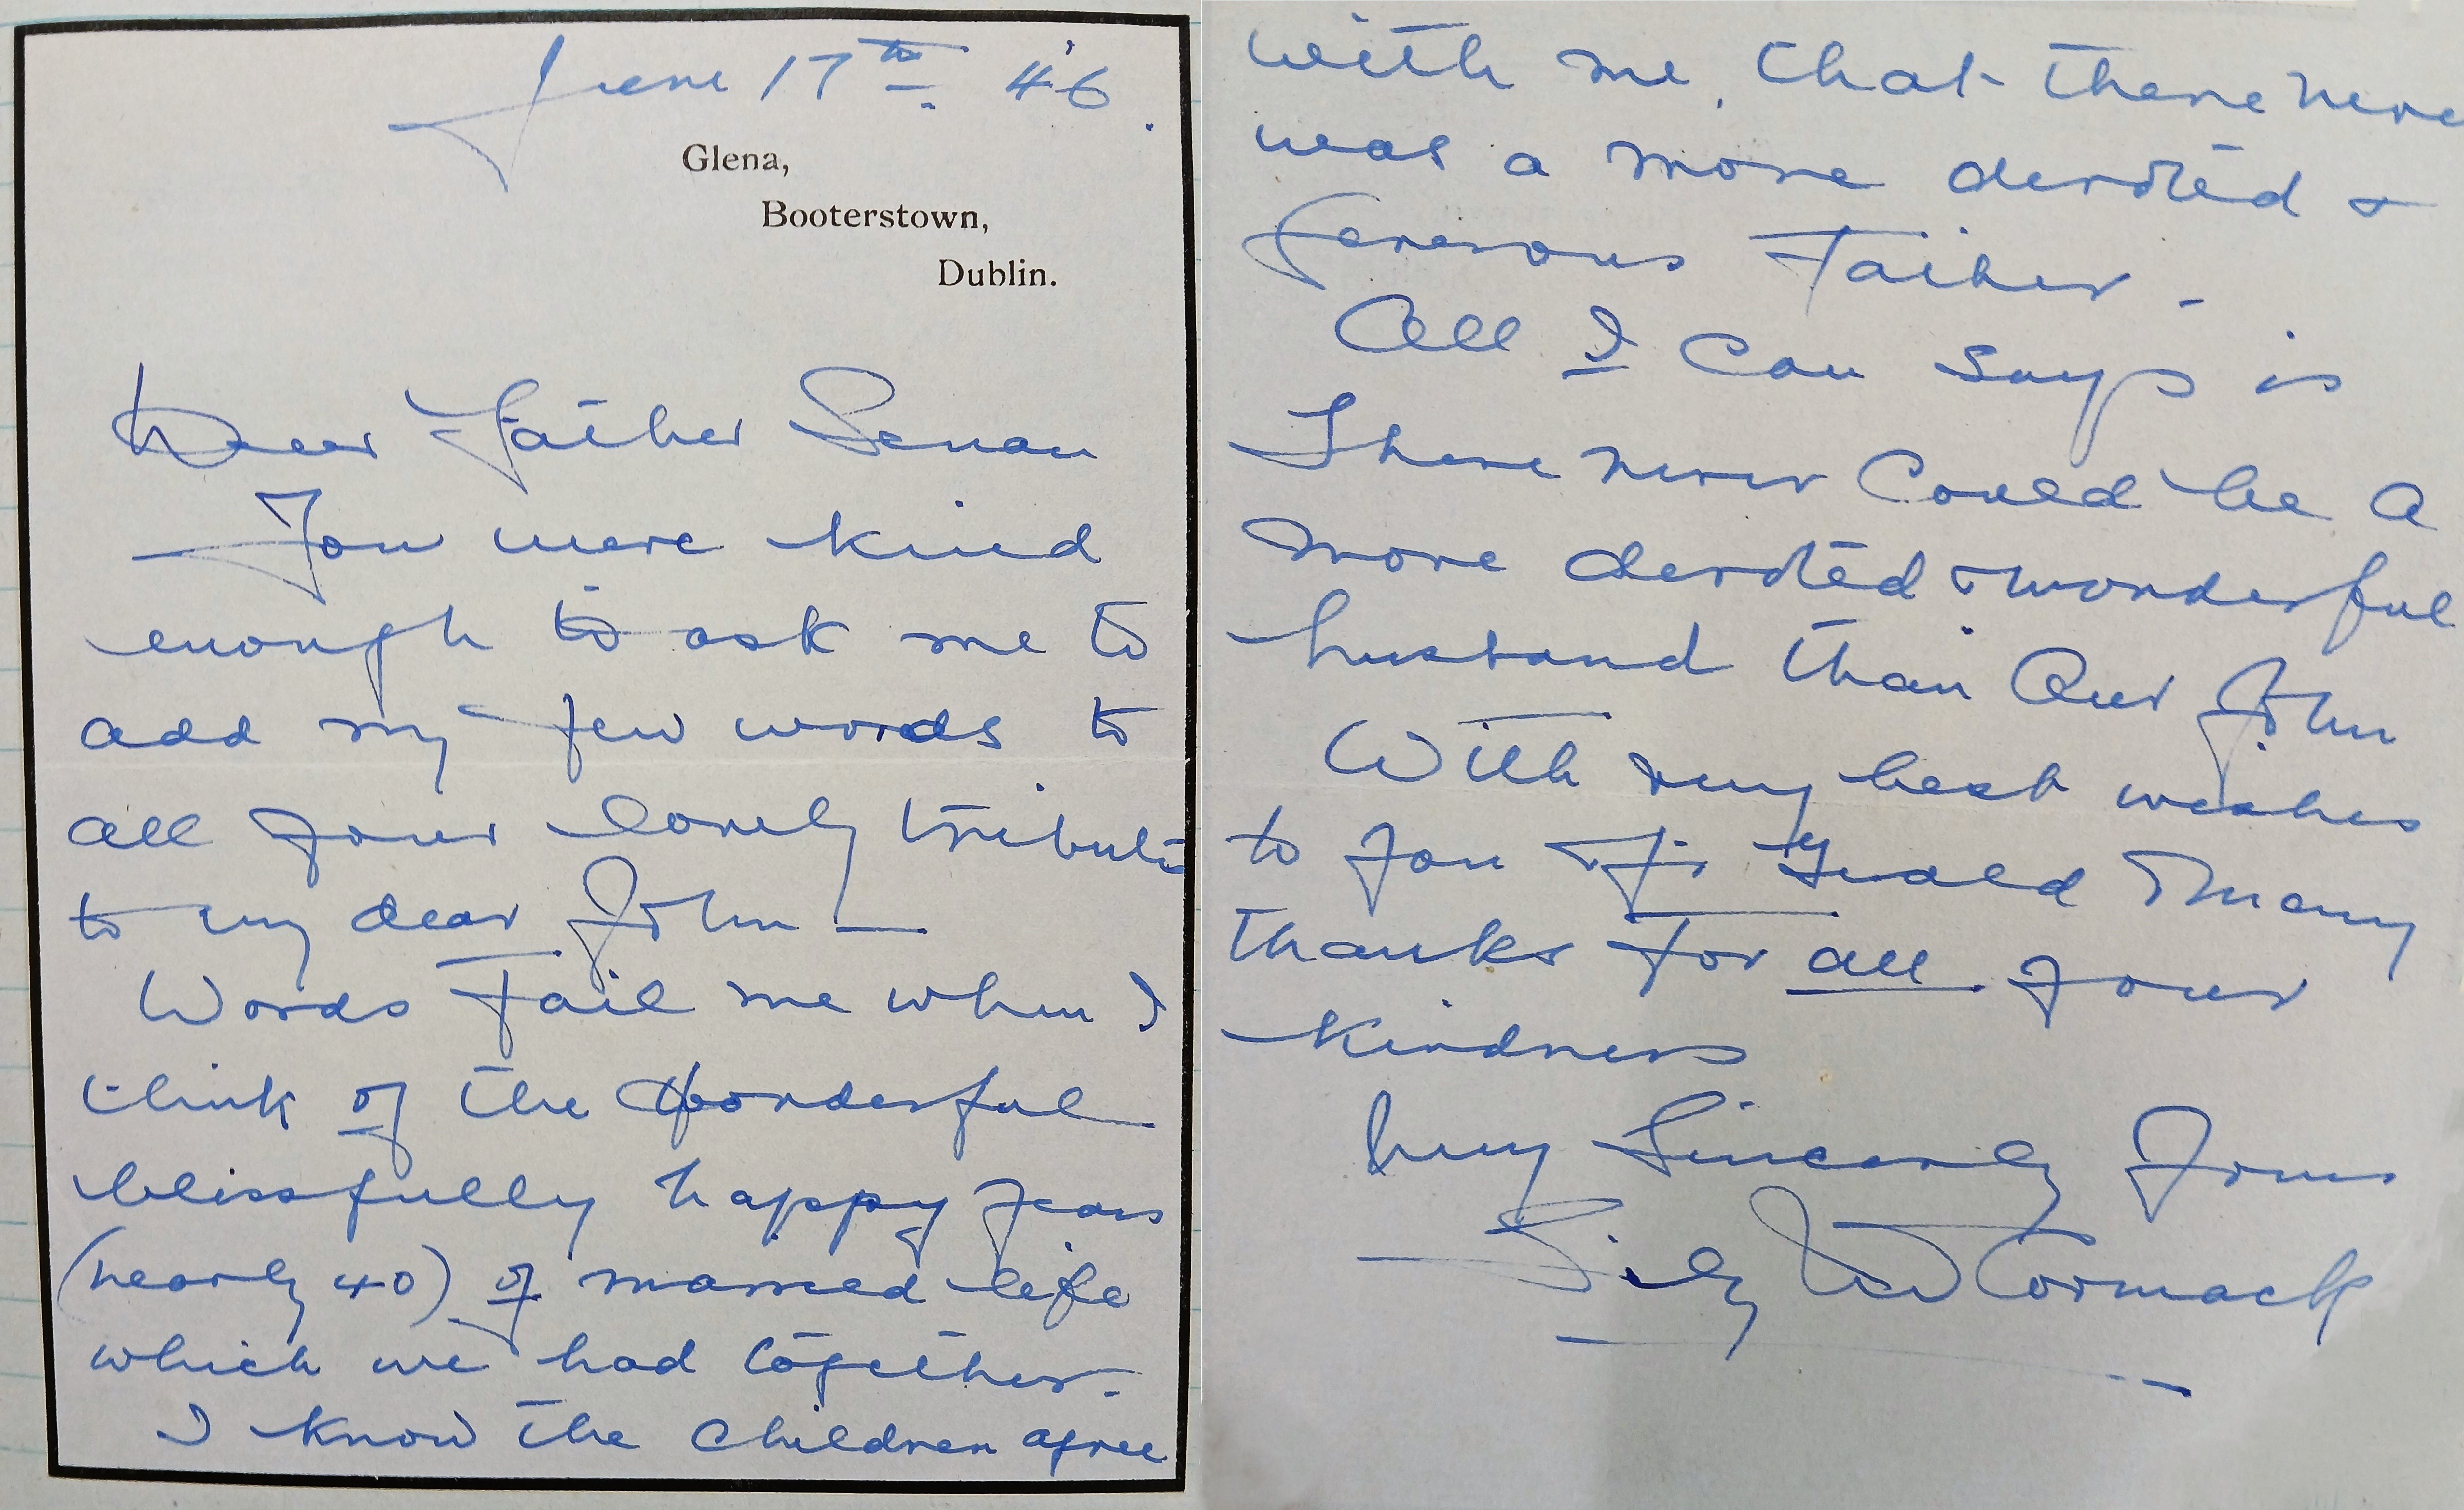 June 17th. '46.
Glena,
Booterstown,
Dublin.
Dear Father Senan
You were kind
enough to ask me to
add my few words to
all your lovely tribute
to my dear John —
Words Fail me when I
think of the wonderful
blissfully happy years
(nearly 40) of married life
which we had together.
I know the children agree
with me, that there never
was a more devoted &
generous Father.
All I can say is
There never Could be a
more devoted & wonderful
husband than Our John
With very best wishes
to you Fr Gerald & many
thanks For all your
kindness
Very Sincerely Yours
Lily McCormack